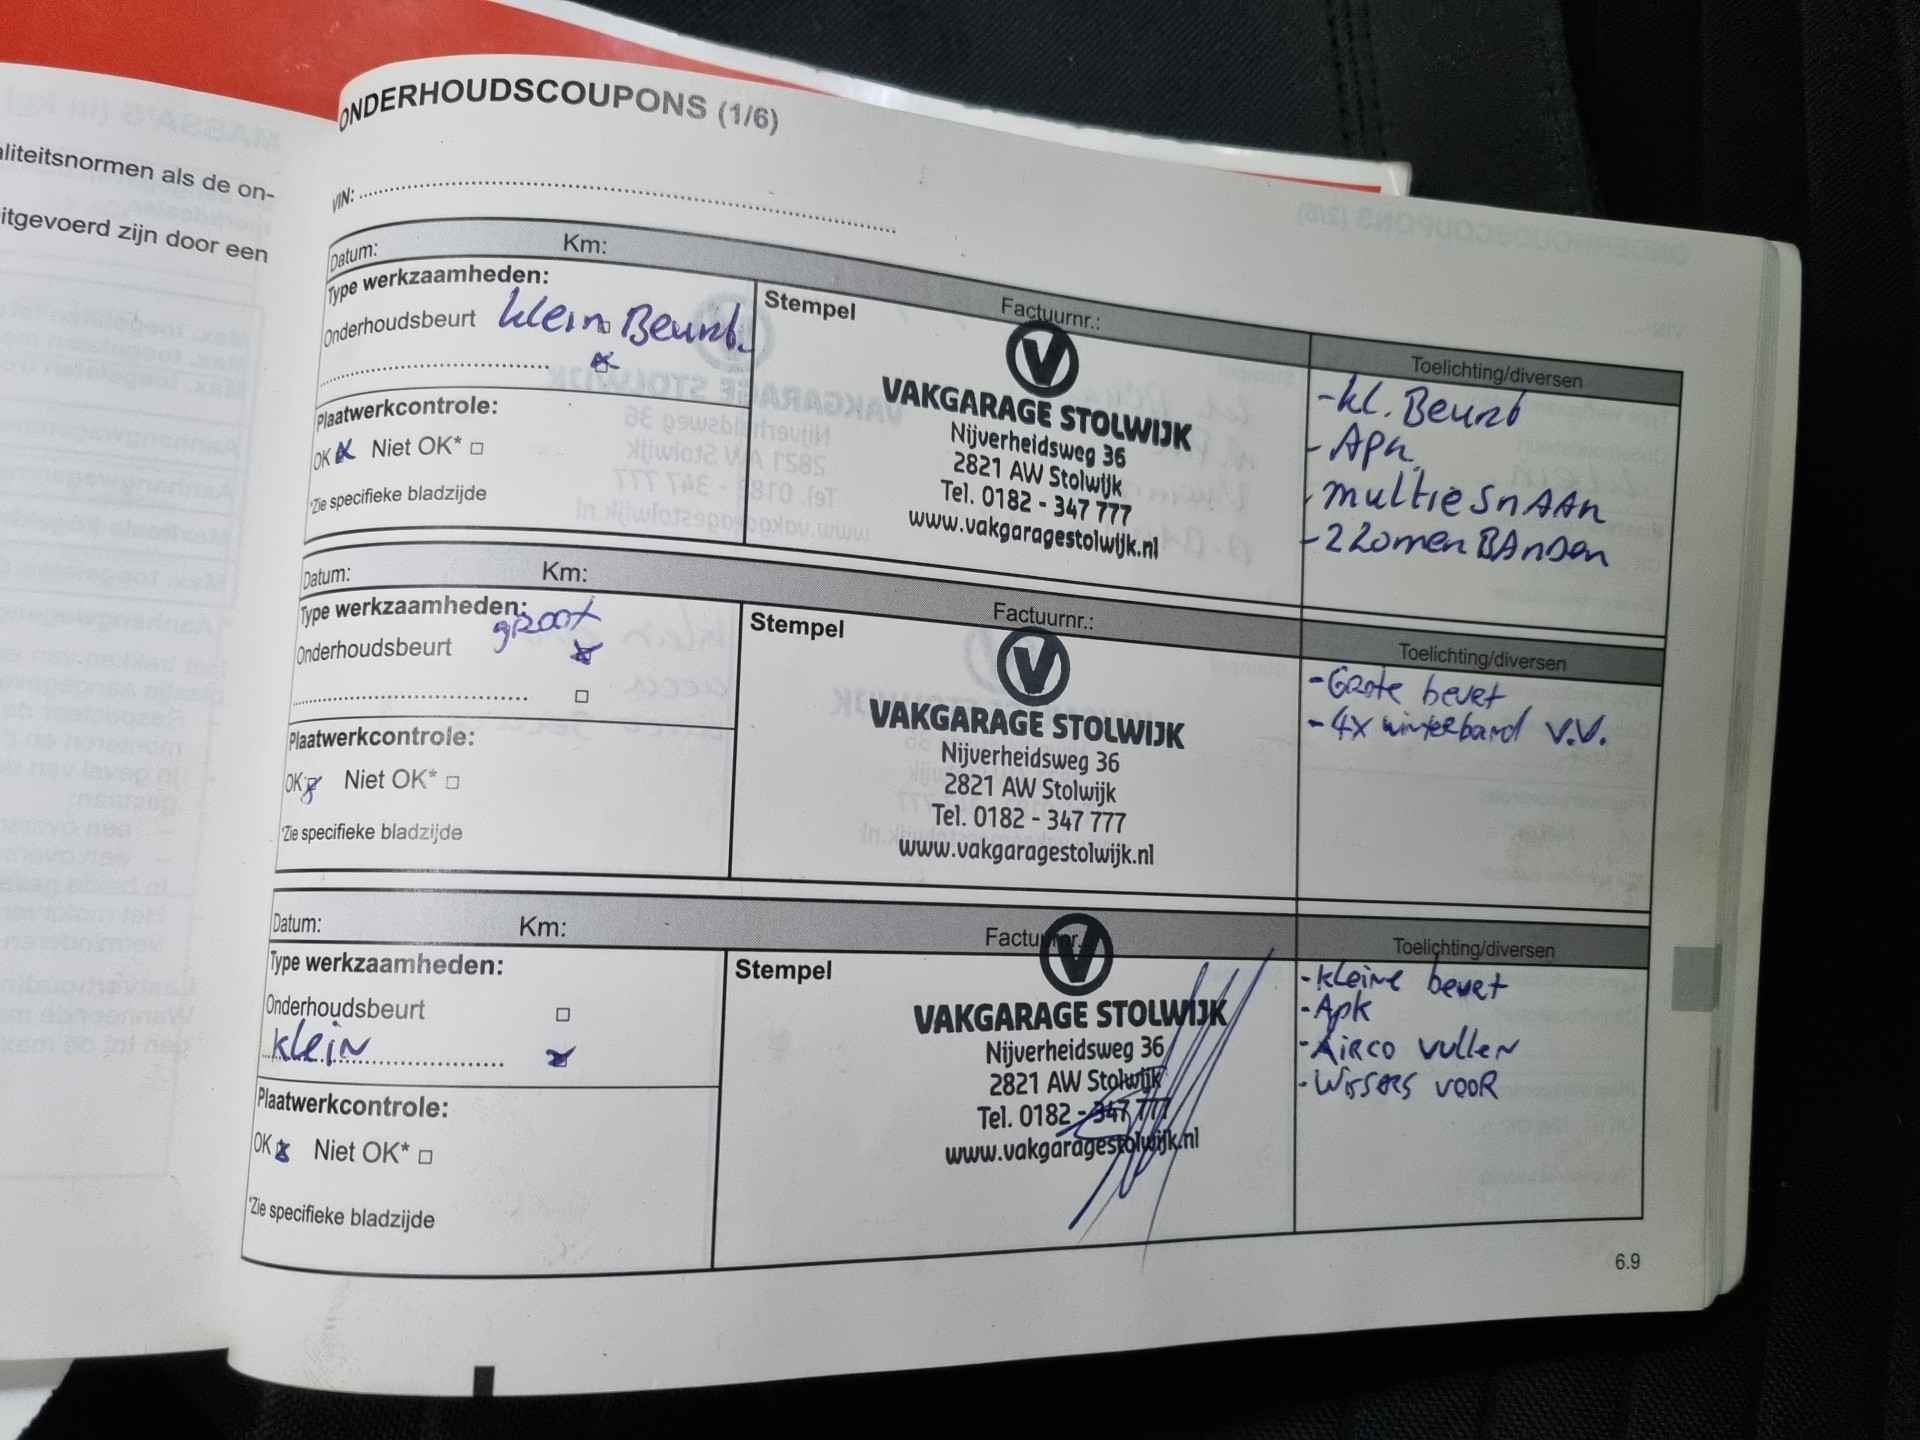 aliteitsnormen als de on-
itgevoerd zijn door een
ONDERHOUDSCOUPONS (1/6)
VIN:
Datum: Km: Factuurnr.: Toelichting/diversen
Type werkzaamheden:
Onderhoudsbeurt klein Beurt.
Plaatwerkcontrole:
OK Niet OK*
*Zie specifieke bladzijde
Stempel
V
VAKGARAGE STOLWIJK
Nijverheidsweg 36
2821 AW Stolwijk
Tel. 0182 - 347 777
www.vakgaragestolwijk.nl
-kl. Beurt
- Apk.
- multiesnAAr
- 2 Zomer BAnDen
Datum: Km: Factuurnr.: Toelichting/diversen
Type werkzaamheden:
groot
Onderhoudsbeurt
Plaatwerkcontrole:
OK Niet OK*
*Zie specifieke bladzijde
Stempel
V
VAKGARAGE STOLWIJK
Nijverheidsweg 36
2821 AW Stolwijk
Tel. 0182 - 347 777
www.vakgaragestolwijk.nl
- Grote beurt
- 4x winterband V.V.
Datum: Km: Factuurnr.: Toelichting/diversen
Type werkzaamheden:
Onderhoudsbeurt
klein
Plaatwerkcontrole:
OK Niet OK*
*Zie specifieke bladzijde
Stempel
V
VAKGARAGE STOLWIJK
Nijverheidsweg 36
2821 AW Stolwijk
Tel. 0182 - 347 777
www.vakgaragestolwijk.nl
- kleine beurt
- Apk
- Airco vullen
- Wissers vooR
6.9